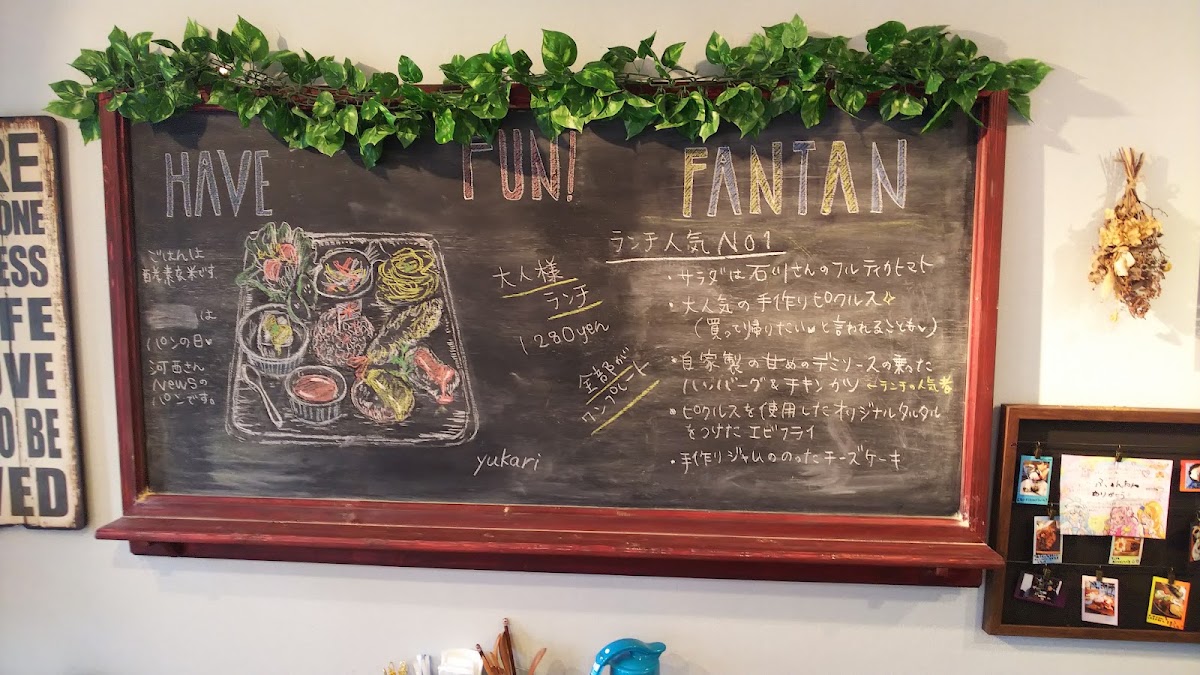 HAVE FUN! FANTAN
ごはんは
酵素玄米です。
は
パンの日♥
河西さん
Newsの
パンです。
大人様
ランチ
1280yen
全部が
ワンプレート
yukari
ランチ人気No1
・サラダは石川さんのフルティカトマト
・大人気の手作りピクルス☆
(買って帰りたい♥と言われることも♥)
・自家製の甘めのデミソースの乗った
ハンバーグ&チキンカツ ←ランチの人気者
・ピクルスを使用したオリジナルタルタル
をつけたエビフライ
・手作りジャムののったチーズケーキ
RE
ONE
ESS
IFE
OVE
O BE
VED